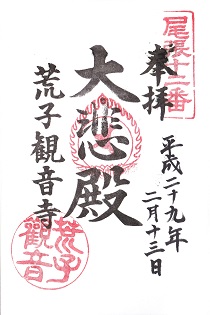 尾張十二番
奉拝
平成二十九年
二月十三日
大悲殿
荒子観音寺
荒子
観音